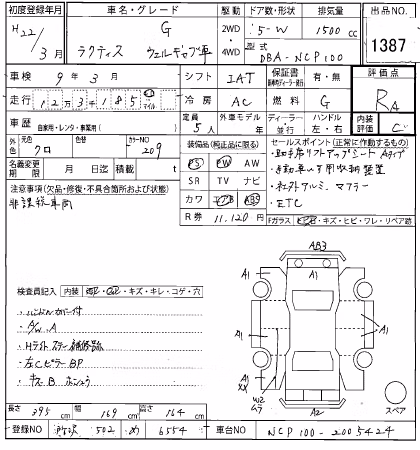 初度登録年月 車名・グレード 駆動 ドア数・形状 排気量 出品NO.
H22/3月 ラクティス G ウェルキャブ車 2WD 4WD 5-W 1500cc 1387
型式 DBA-NCP100
車検 9年3月 シフト IAT 保証書 有・無 評価点
走行 123418 5 マイル 冷房 AC 燃料 G RA
車歴 自家用・レンタ・事業用( ) 定員 5人 外車モデル 年 ディーラー 並行 ハンドル 左・右 内装評価 C
外色 元色 クロ 色替 カラーNO 209
装備品(純正品に限る) セールスポイント(正常に作動するもの)
名義変更期限 月 日迄 積載 t
PS PW AW
・助手席リフトアップシート Aタイプ
注意事項(欠品・修復・不具合箇所および状態)
SR TV ナビ
・車いす用収納装置
非課税車両
カワ エアB ABS
・社外アルミ、マフラー
・ETC
R券 11,120円
Fガラス キズ・ヒビ・ワレ・リペア跡
検査員記入 内装 キズ・キレ・コゲ・穴
・ハンドルカバー付
・A/W A
・Hライト
・左CピラーBP
・キズB
A1 AB3 A1
A1 A1 A1
A1 XX A1
W2 ムラ A2 スペア
長さ 395cm 幅 169cm 高さ 164cm
登録NO 所沢 502 6554 車台NO NCP100-2005424